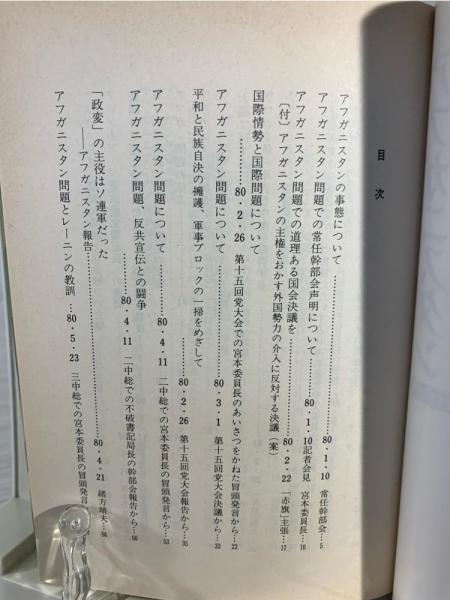 目次
アフガニスタンの事態について……………80・1・10 常任幹部会…5
アフガニスタン問題での常任幹部会声明について……80・1・10記者会見 宮本委員長…10
アフガニスタン問題での道理ある国会決議を……………80・2・22 「赤旗」主張…17
〔付〕アフガニスタンの主権をおかす外国勢力の介入に反対する決議（案）
国際情勢と国際問題について
……………80・2・26 第十五回党大会での宮本委員長のあいさつをかねた冒頭発言から…22
アフガニスタン問題について……………80・3・1 第十五回党大会決議から…33
平和と民族自決の擁護、軍事ブロックの一掃をめざして
……………80・2・26 第十五回党大会報告から…35
アフガニスタン問題について……………80・4・11 二中総での宮本委員長の冒頭発言から…53
アフガニスタン問題、反共宣伝との闘争
……………80・4・11 二中総での不破書記局長の幹部会報告から…60
「政変」の主役はソ連軍だった
――アフガニスタン報告……………80・4・21 緒方靖夫…66
アフガニスタン問題とレーニンの教訓…80・5・23 三中総での宮本委員長の冒頭発言